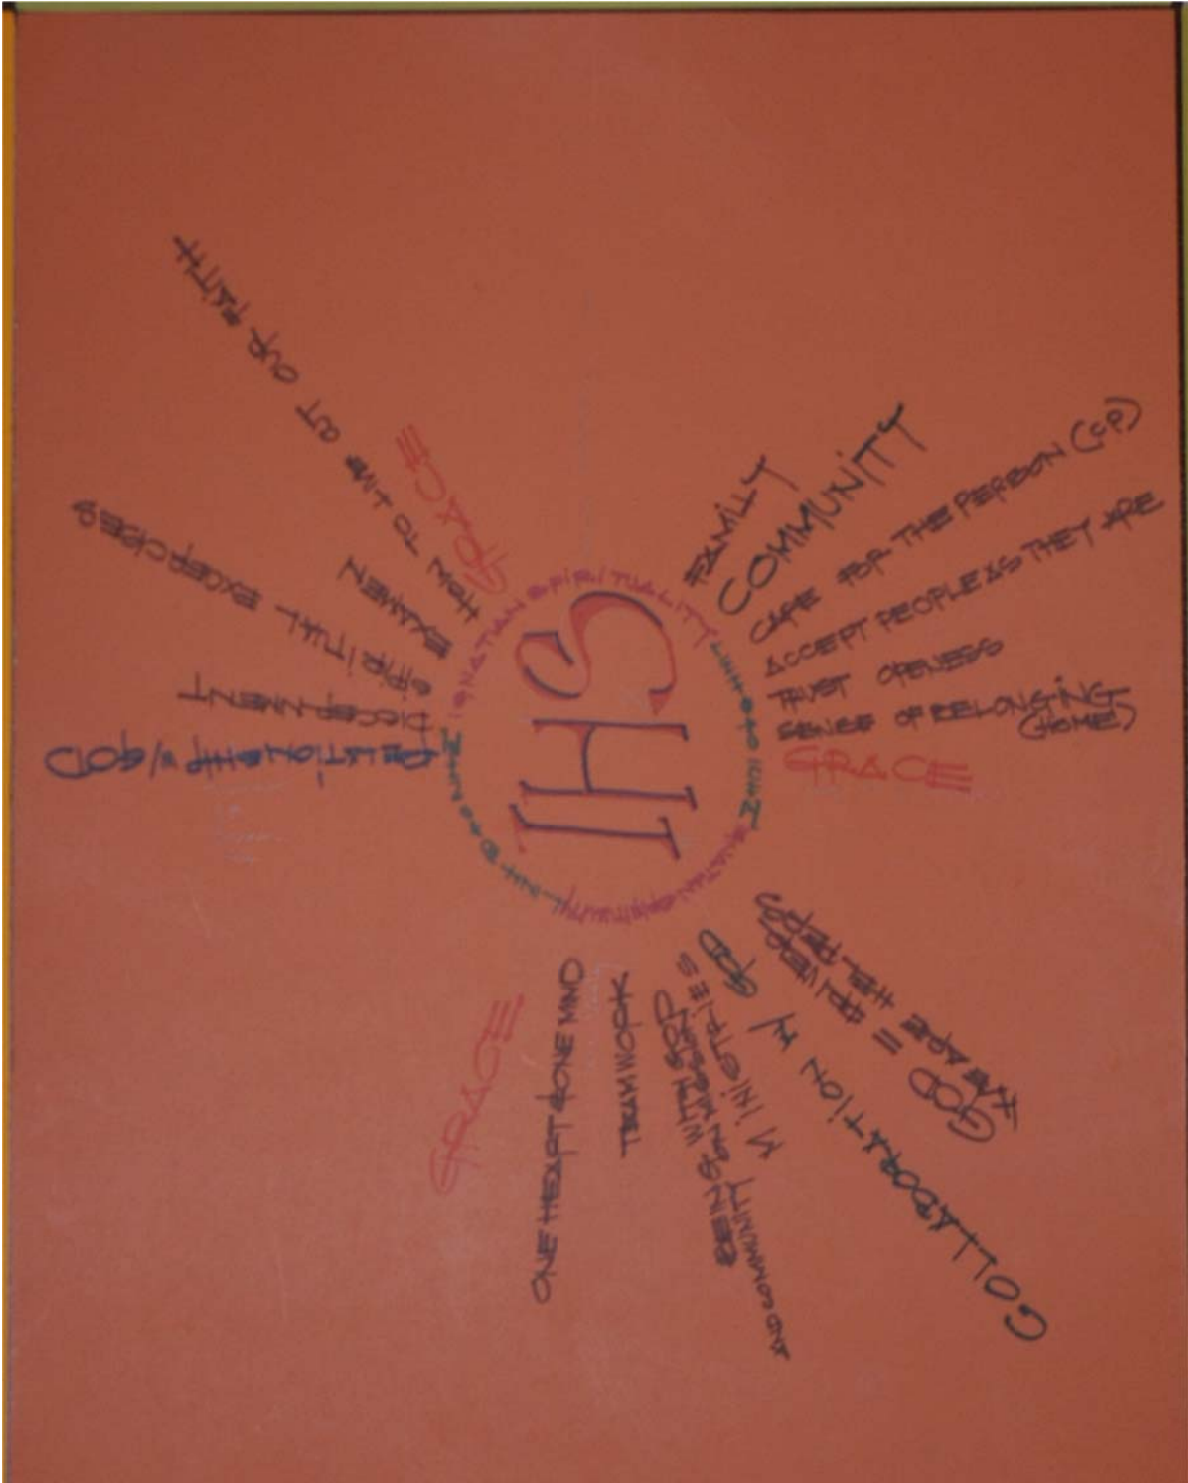 IHS
IGNATIAN SPIRITUALITY
IGNATIAN SPIRITUALITY
FAMILY
COMMUNITY
CARE FOR THE PERSON (CP)
ACCEPT PEOPLE AS THEY ARE
OPENESS
SENSE OF BELONGING
(HOME)
GRACE
WE ARE HELPERS
GOD =
COLLABORATION W GOD
MINISTRIES
BEING ON MISSION
WITH GOD
AND COMMUNITY
TEAMWORK
ONE HEART & ONE MIND
GRACE
RELATIONSHIP W/ GOD
DISCERNMENT
SPIRITUAL EXERCISES
EXAMEN
HOW TO LIVE OUT OUR FAITH
GRACE